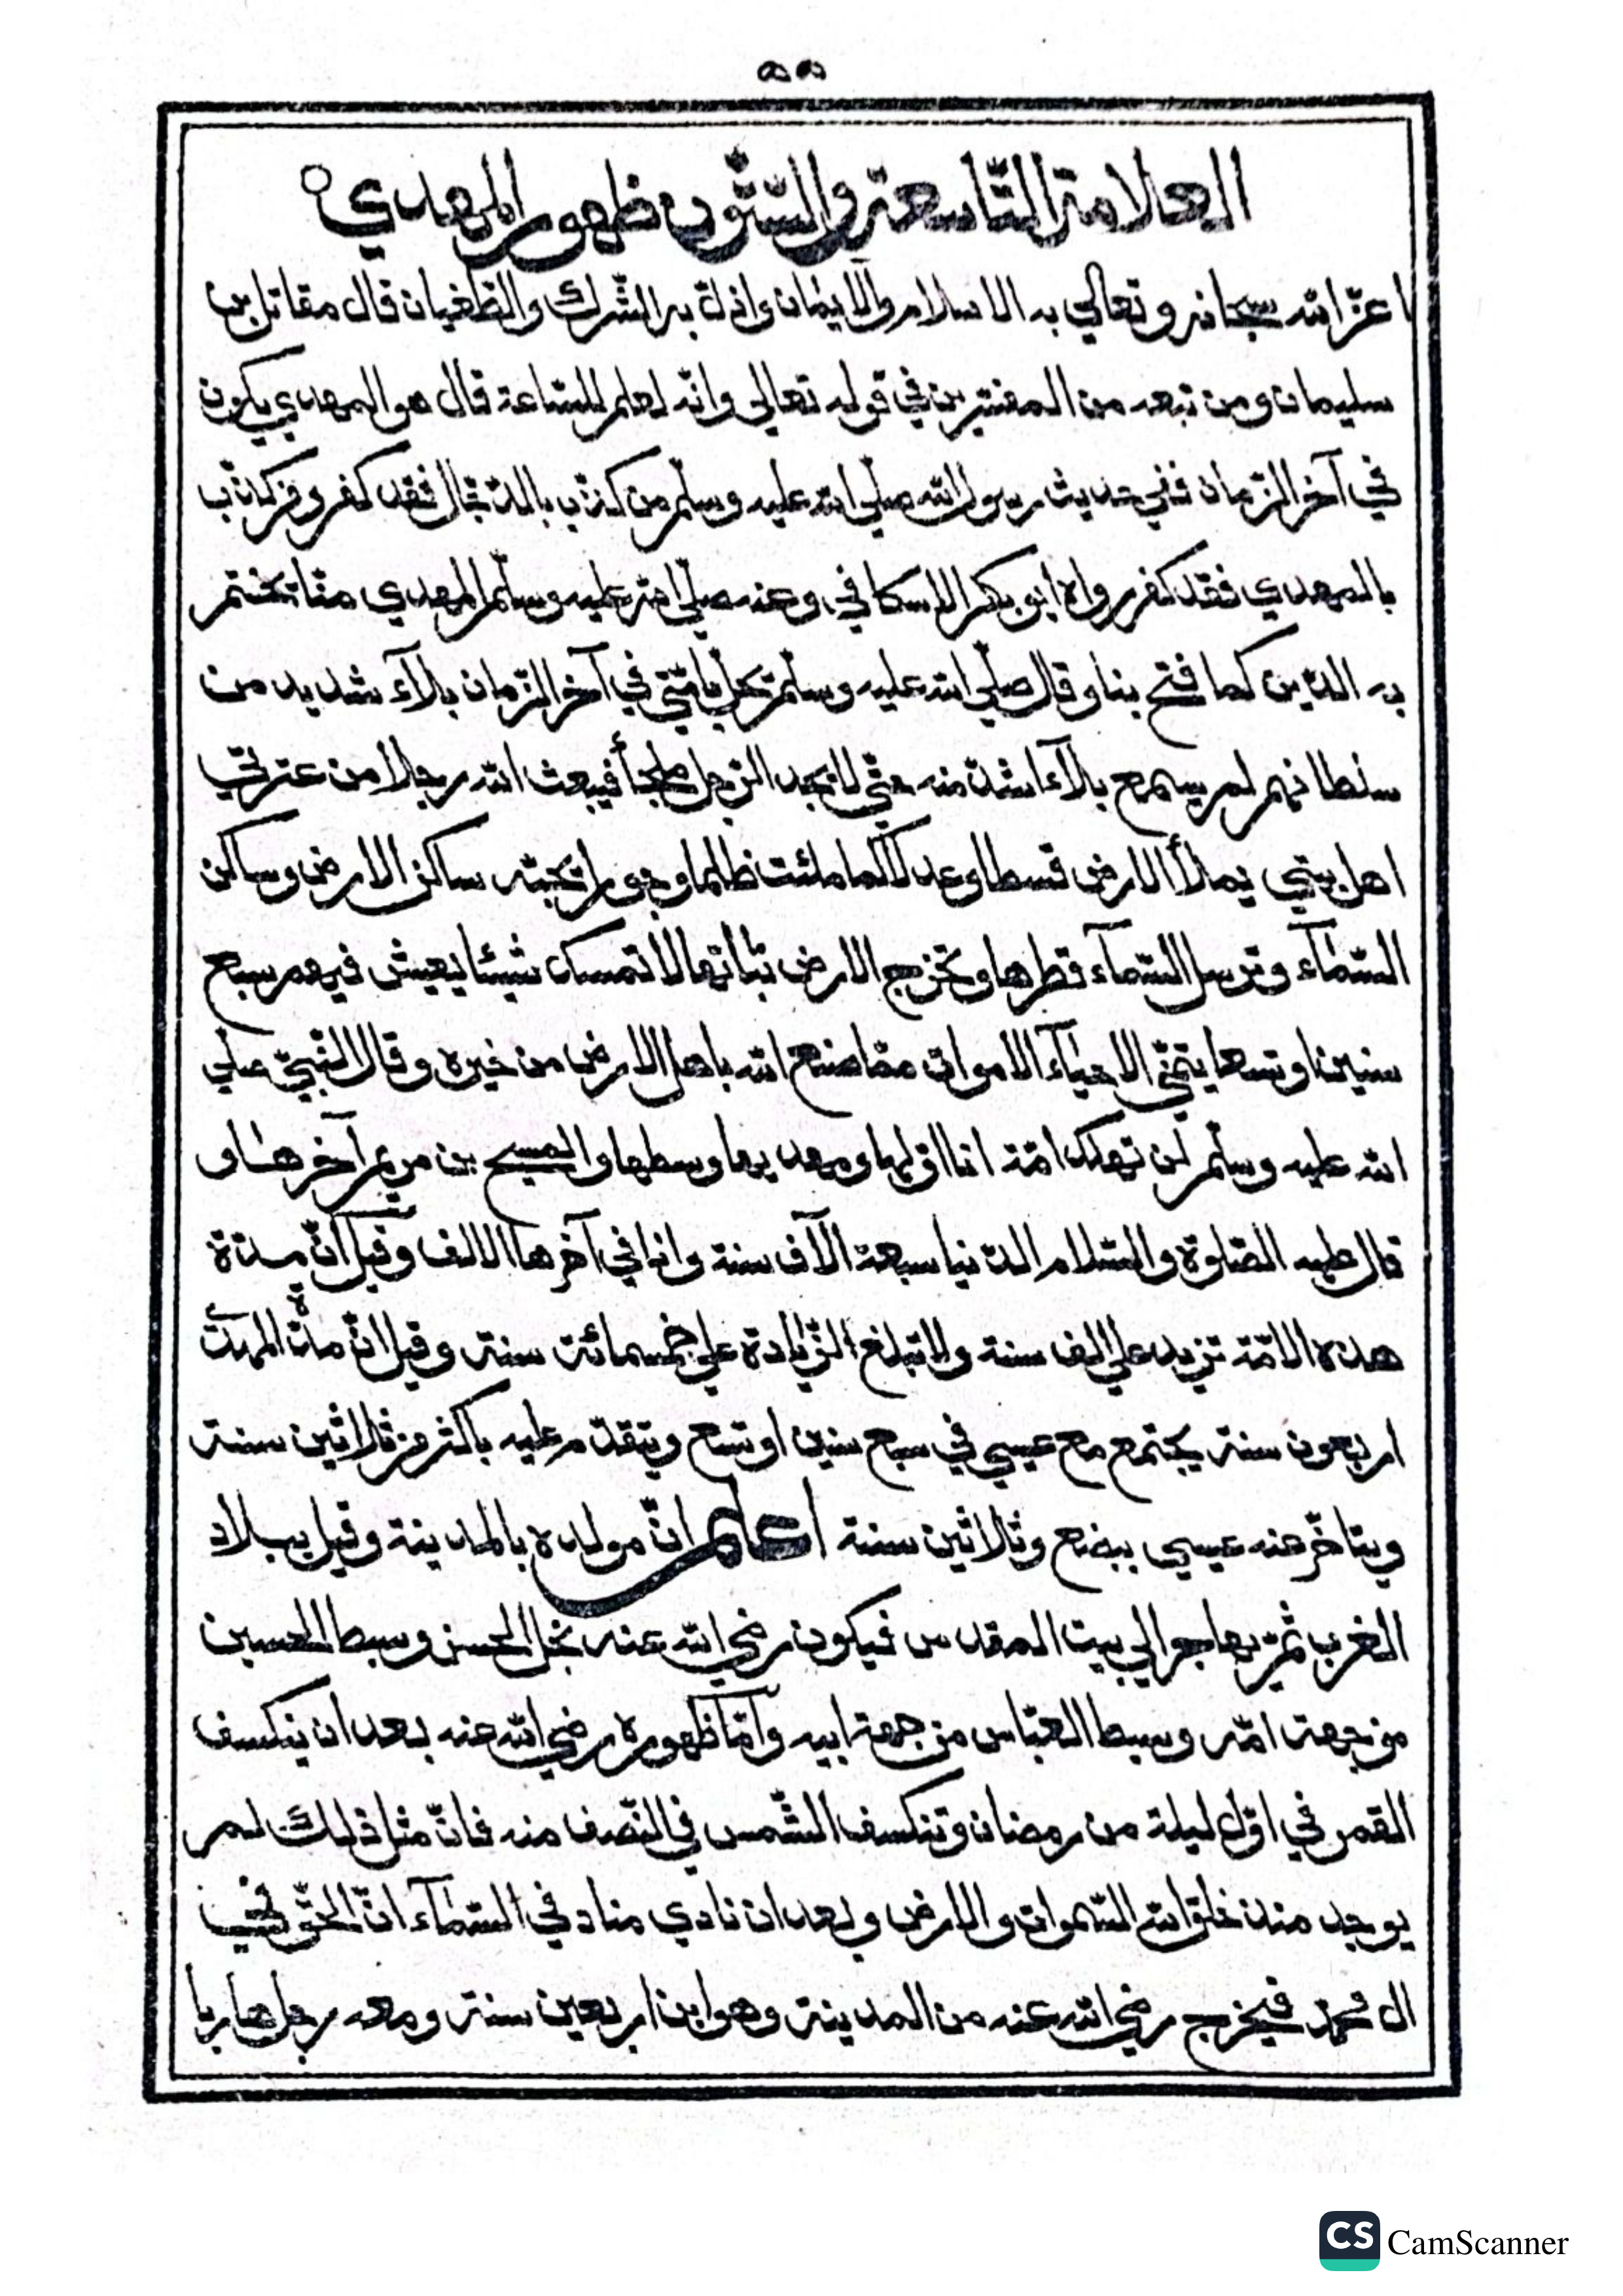 ٥٥
العلامة التاسعة والستون ظهور المهدي
اعز الله سبحانه وتعالي به الاسلام والايمان واذل به الشرك والطغيان قال مقاتل بن
سليمان ومن تبعه من المفسرين في قوله تعالي وانه لعلم للساعة قال هو المهدي يكون
في آخر الزمان ففي حديث رسول الله صلي الله عليه وسلم من كذب بالدجال فقد كفر ومن كذب
بالمهدي فقد كفر رواه ابو بكر الاسكافي وعنه صلي الله عليه وسلم المهدي منا يختم
به الدين كما فتح بنا وقال صلي الله عليه وسلم يحل بامتي في آخر الزمان بلآء شديد من
سلطانهم لم يسمع بلآء اشد منه حتي لا يجد الرجل ملجأ فيبعث الله رجلا من عترتي
اهل بيتي يملأ الارض قسطا وعدلا كما ملئت ظلما وجورا يحبه ساكن الارض وساكن
السمآء وترسل السمآء قطرها وتخرج الارض نباتها لا تمسك شيئا يعيش فيهم سبع
سنين او تسعا يتمني الاحيآء الاموات مما صنع الله باهل الارض من خيره وقال النبي صلي
الله عليه وسلم لن تهلك امة انا اولها ومهديها وسطها والمسيح بن مريم آخرها و
قال عليه الصلوة والسلام الدنيا سبعة الآف سنة وانا في آخرها الالف وقيل ان مدة
هذه الامة تزيد علي الف سنة ولا تبلغ الزيادة علي خمسمائة سنة وقيل ان مدة المهدي
اربعون سنة يجتمع مع عيسي في سبع سنين او تسع ويتقدم عليه باكثر من ثلاثين سنة
ويتاخر عنه عيسي ببضع وثلاثين سنة اعلم ان مولده بالمدينة وقيل ببلاد
المغرب ثم يهاجر الي بيت المقدس فيكون رضي الله عنه نجل الحسن وسبط الحسين
من جهة امه وسبط العباس من جهة ابيه واما ظهوره رضي الله عنه بعد ان ينكسف
القمر في اول ليلة من رمضان وتنكسف الشمس في النصف منه فان مثل ذلك لم
يوجد منذ خلق الله السموات والارض وبعد ان نادي مناد في السمآء ان الحق في
ال محمد فيخرج رضي الله عنه من المدينة وهو ابن اربعين سنة ومعه رجل هاربا
CS CamScanner